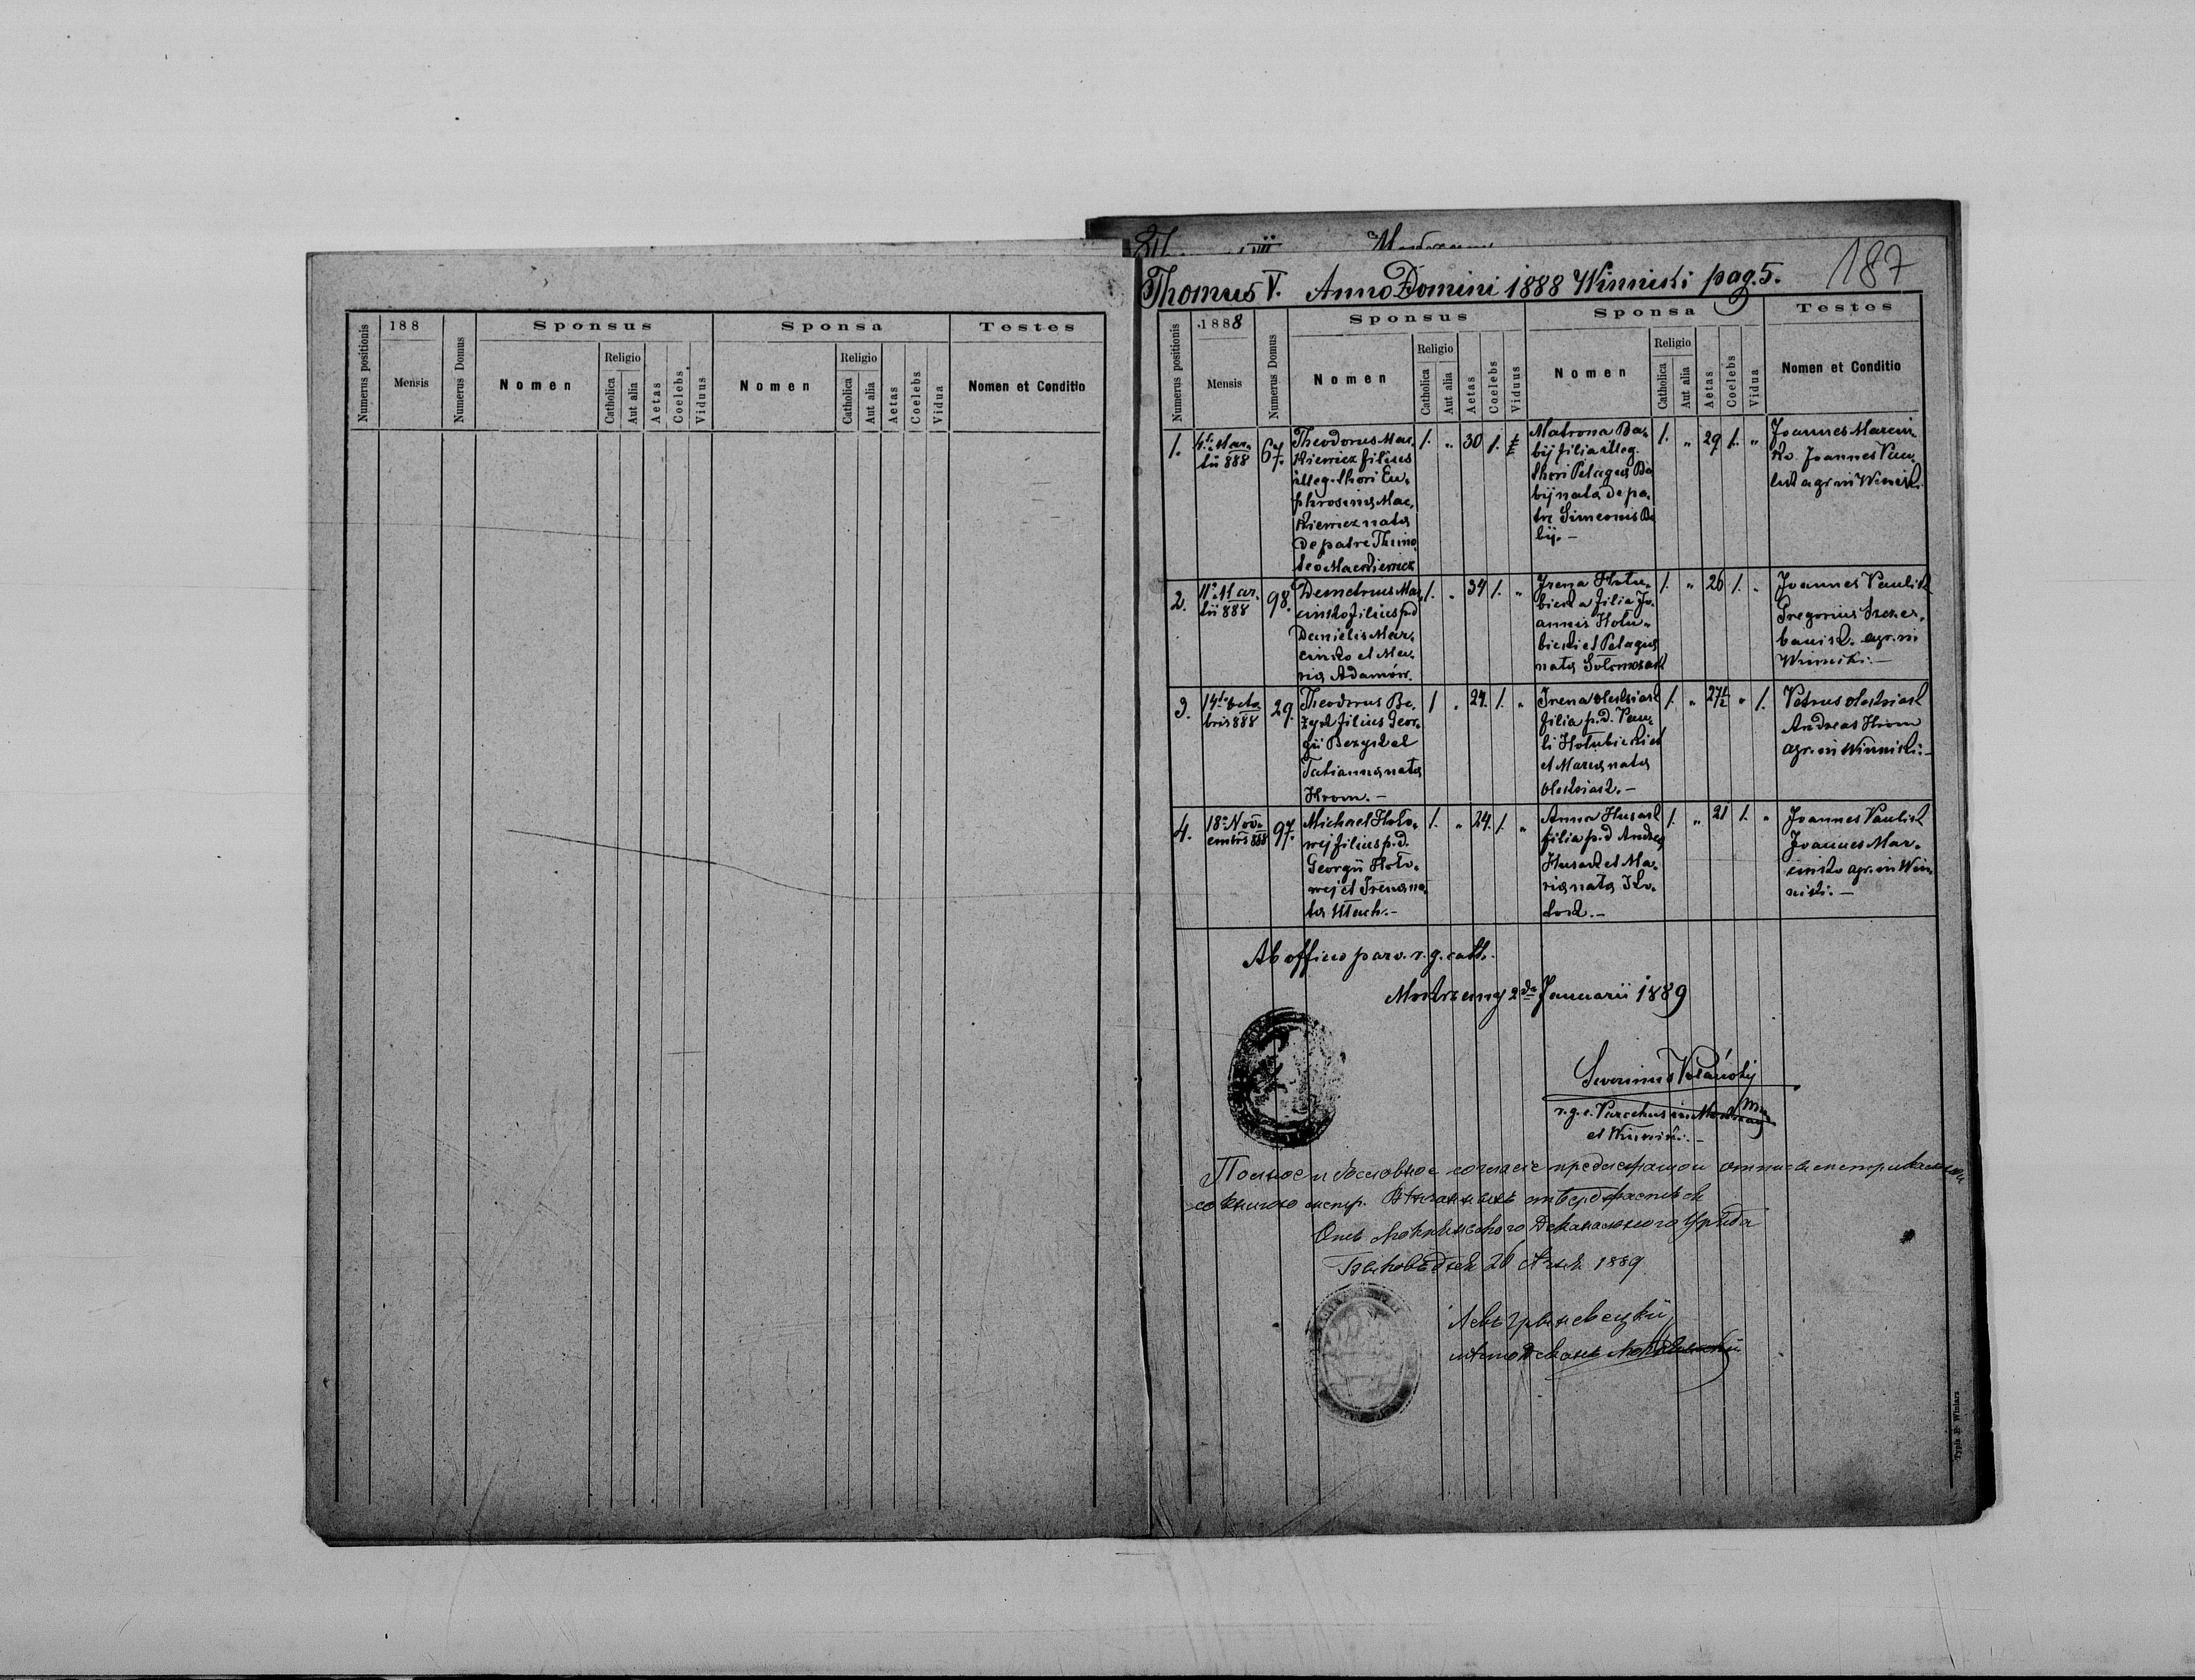 Numerus positionis
188
Mensis
Numerus Domus
Sponsus
Nomen
Religio
Catholica
Aut alia
Aetas
Coelebs
Viduus
Sponsa
Nomen
Religio
Catholica
Aut alia
Aetas
Coelebs
Vidua
Testes
Nomen et Conditio
Thomus V. Anno Domini 1888 Winniki pag. 5.
187
Numerus positionis
1888
Mensis
Numerus Domus
Sponsus
Nomen
Religio
Catholica
Aut alia
Aetas
Coelebs
Viduus
Sponsa
Nomen
Religio
Catholica
Aut alia
Aetas
Coelebs
Vidua
Testes
Nomen et Conditio
1.
4. Mar-
tii 888
67.
Theodorus Mac
kiewicz filius
illeg. thori Eu-
phrosinae Mac-
kiewicz nata
de patre Thimo
teo Mackiewicz
1. " 30 1.
Matrona Ba-
bij filia illeg.
thori Pelagia Ba
bij nata de pa-
tre Simeonis Ba
bij. -
1. " 29 1. "
Joannes Marcin-
ko Joannes Pau-
lik agr. in Winniki
2.
11 Mar-
tii 888
98.
Demetrius Mar-
cinko filius p.d.
Danielis Mar-
cinko et Ma-
ria Adamów.
1. " 34 1. "
Irena Hołu-
biecka filia Jo-
annis Hołu-
biecki et Pelagia
nata
1. " 26 1. "
Joannes Paulik
Gregorius Szczer-
baniuk agr. in
Winniki. -
3.
14 Octo-
bris 888
29.
Theodorus Be-
zyk filius Geor-
gii Bezyk et
Tatianna nata
Hrom. -
1 " 24. 1. "
Irena Oleksiak
filia p.d. Pau-
li Hołubiecki et
et Maria nata
Oleksiak. -
1. " 27½ " 1.
Petrus Oleksiak
Andreas Hrom
agr. in Winniki. -
4.
18 Nov-
embris 888
97.
Michael Hoło-
wej filius p.d.
Georgii Hoło-
wej et Irena na-
ta Stach. -
1. " 24. 1. "
Anna Husak
filia p.d. Andrea
Husak et Ma-
ria nata
1. " 21 1. "
Joannes Paulik
Joannes Mar-
cinko agr. in Win-
niki. -
Ab officio paro. r. g. cath.
2da Januarii 1889
Severinus
r. g. c. Parochus in
et Winniki. -
Полное и дословное согласіе
со книгою метр. Вѣнчанныхъ
Отъ Деканального Уряда
26 1889
Левъ
Typis E. Winiarz